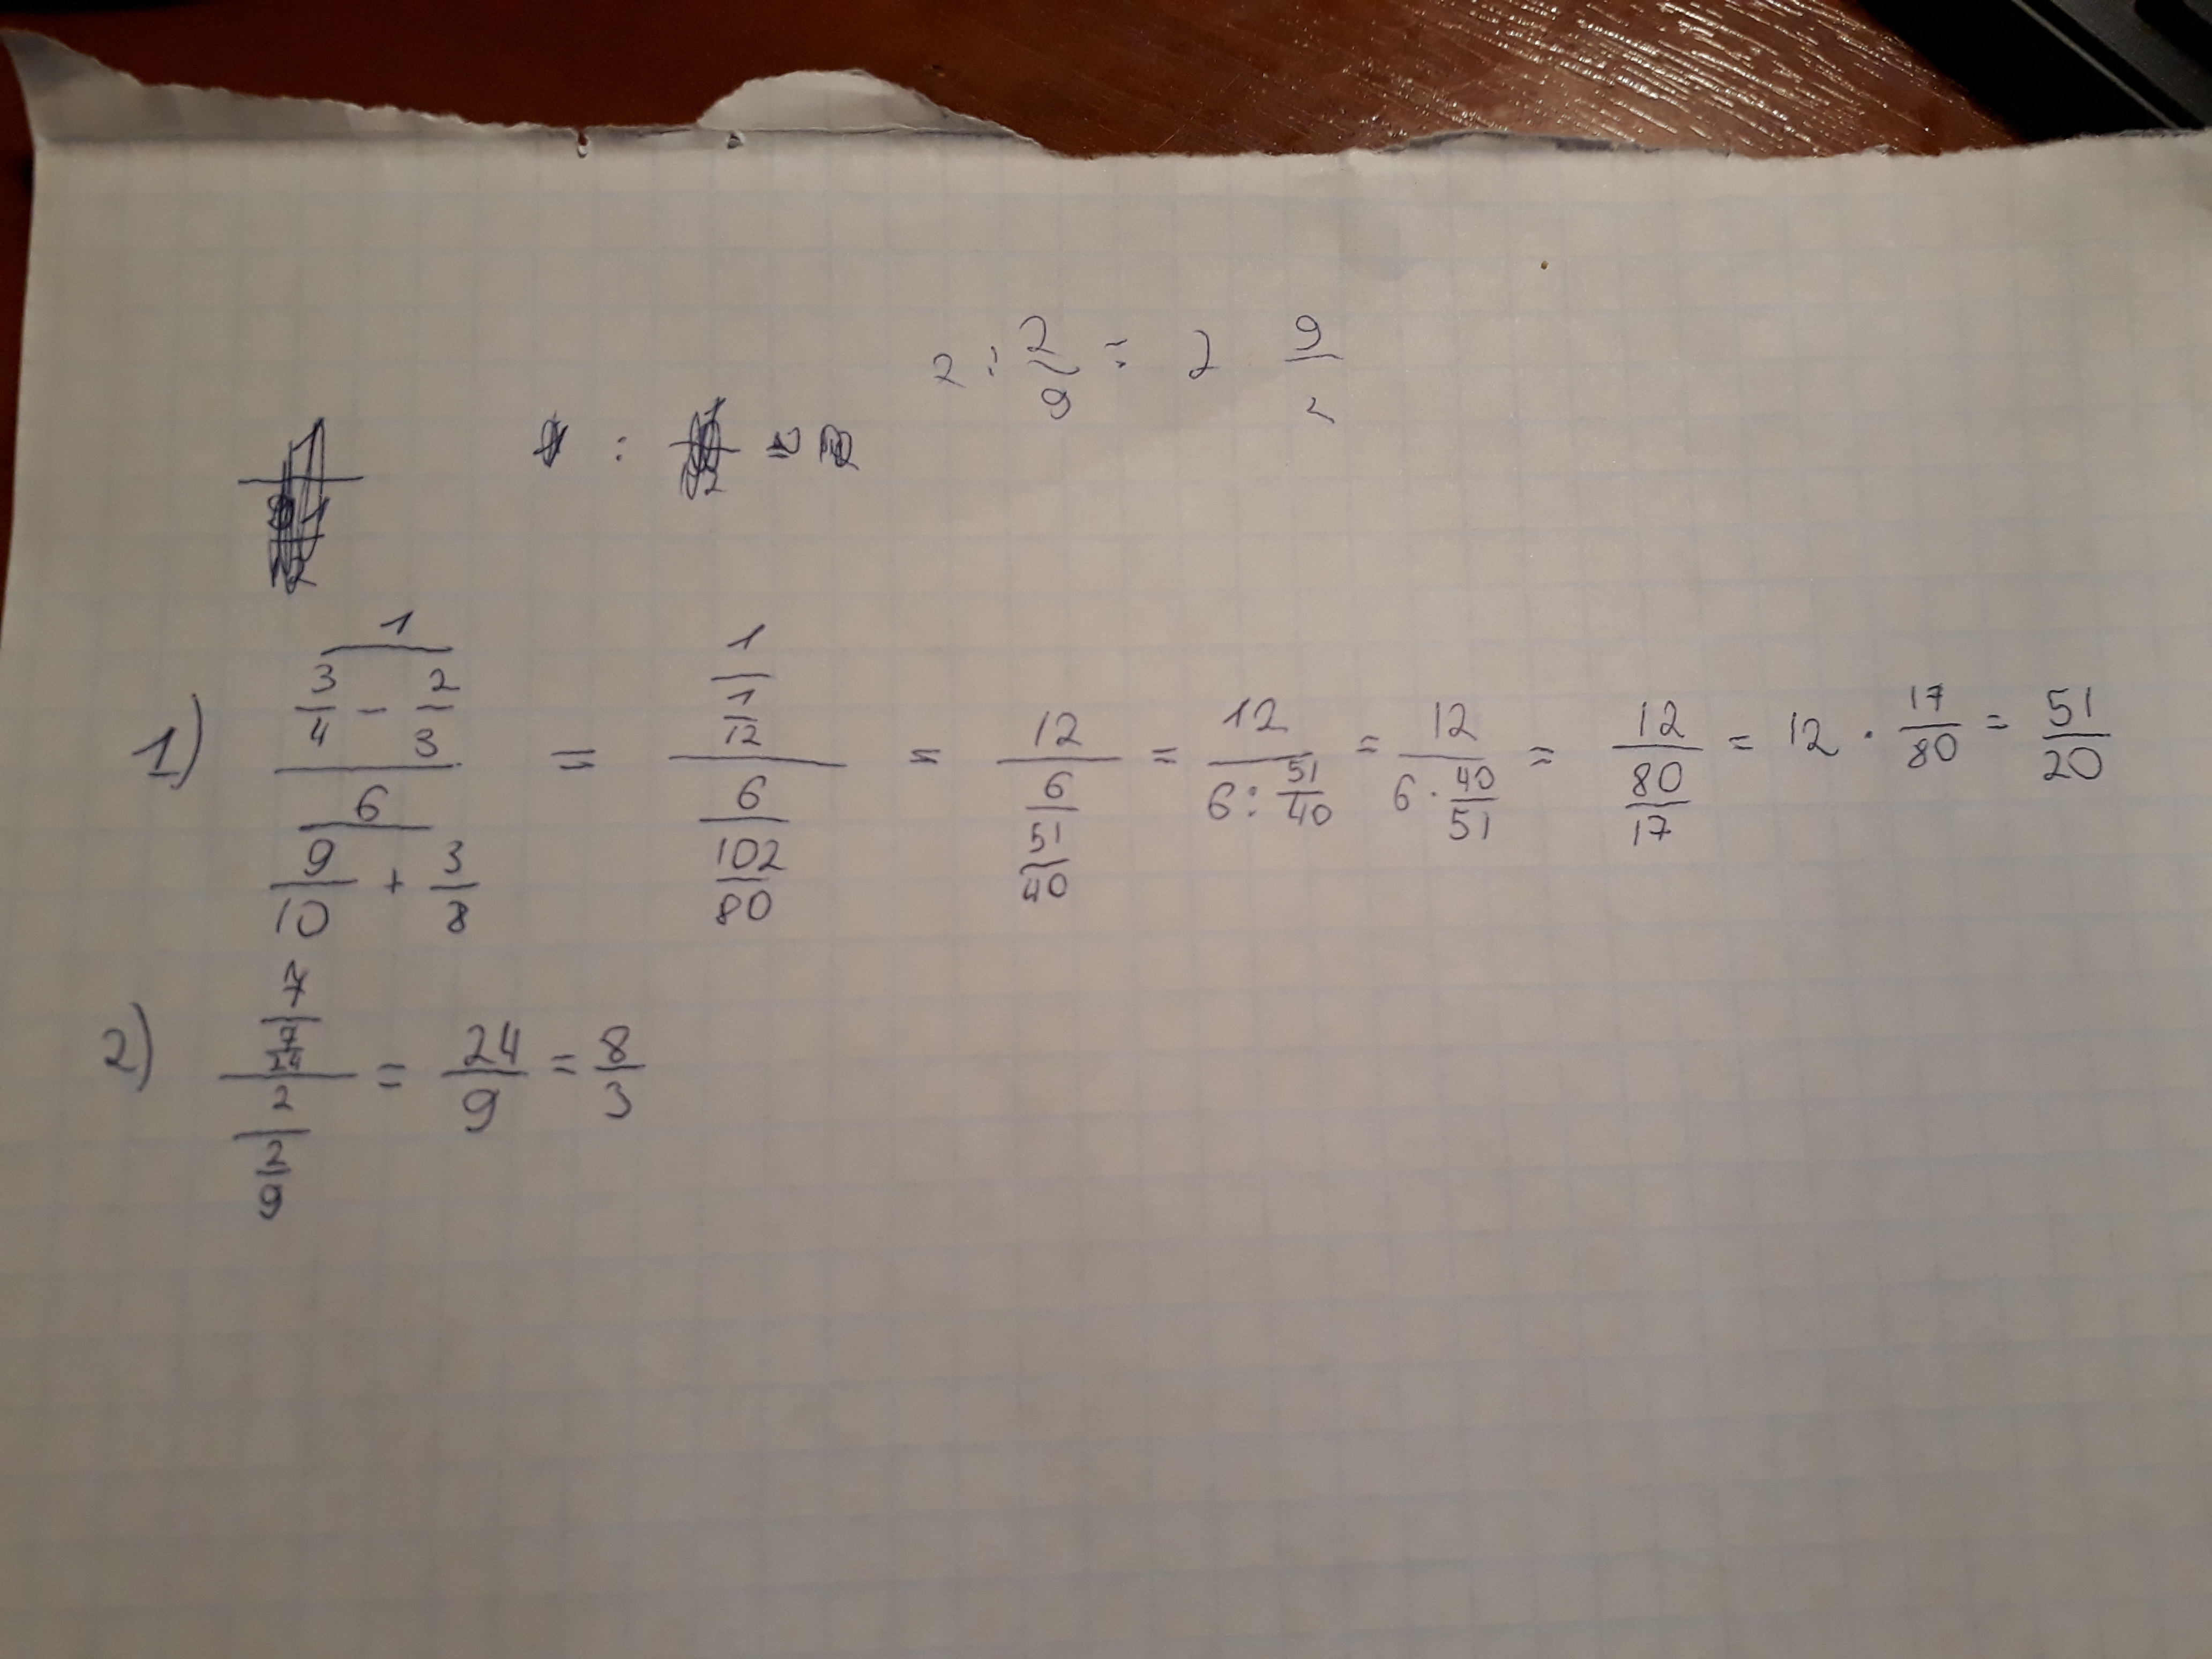 2 : 2/9 = 2 9/2
1) (1/(3/4 - 2/3))/(6/(9/10 + 3/8)) = (1/(1/12))/(6/(102/80)) = 12/(6/(51/40)) = 12/(6 : 51/40) = 12/(6 · 40/51) = 12/(80/17) = 12 · 17/80 = 51/20
2) (7/(7/24))/(2/(2/9)) = 24/9 = 8/3